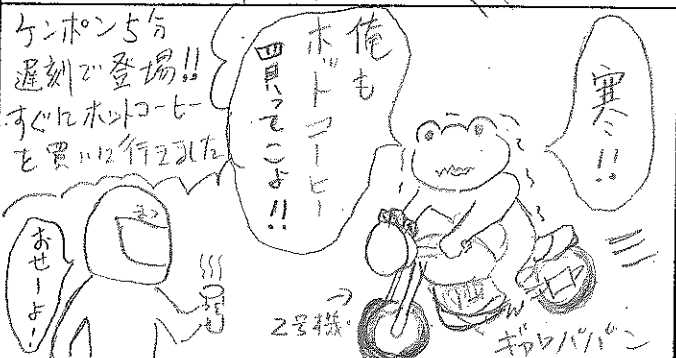 寒!!
俺も
ホットコーヒー
買ってこよ!!
ケンポン5分
遅刻で登場!!
すぐにホットコーヒー
を買いに行きました
おせーよ!
2号機
ギュロババーン